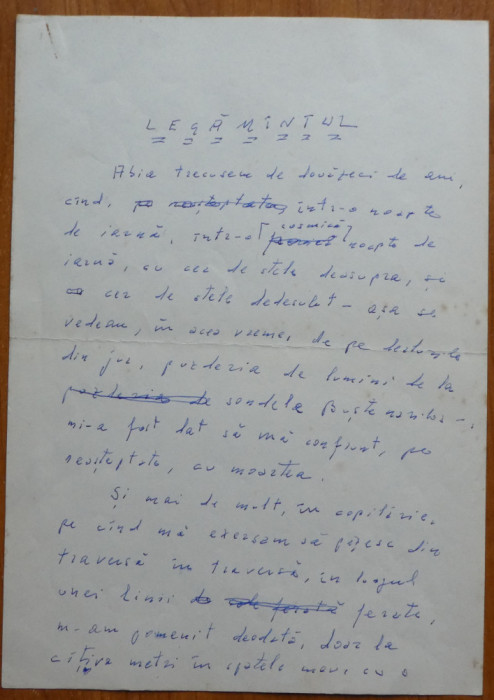 LEGĂMÎNTUL
Abia trecusem de douăzeci de ani,
cînd, pe neașteptate, într-o noapte
de iarnă, într-o cosmică noapte de
iarnă, cu cer de stele deasupra, și
cu cer de stele dedesubt - așa se
vedeau, în acea vreme, de pe dealurile
din jur, puzderia de lumini de la
puzderia de sondele Buștenarilor -,
mi-a fost dat să mă confrunt, pe
neașteptate, cu moartea.
Și mai de mult, în copilărie,
pe cînd mă exersam să pășesc din
traversă în traversă, în lungul
unei linii de cale ferată ferate,
m-am pomenit deodată, doar la
cîțiva metri în spatele meu, cu o